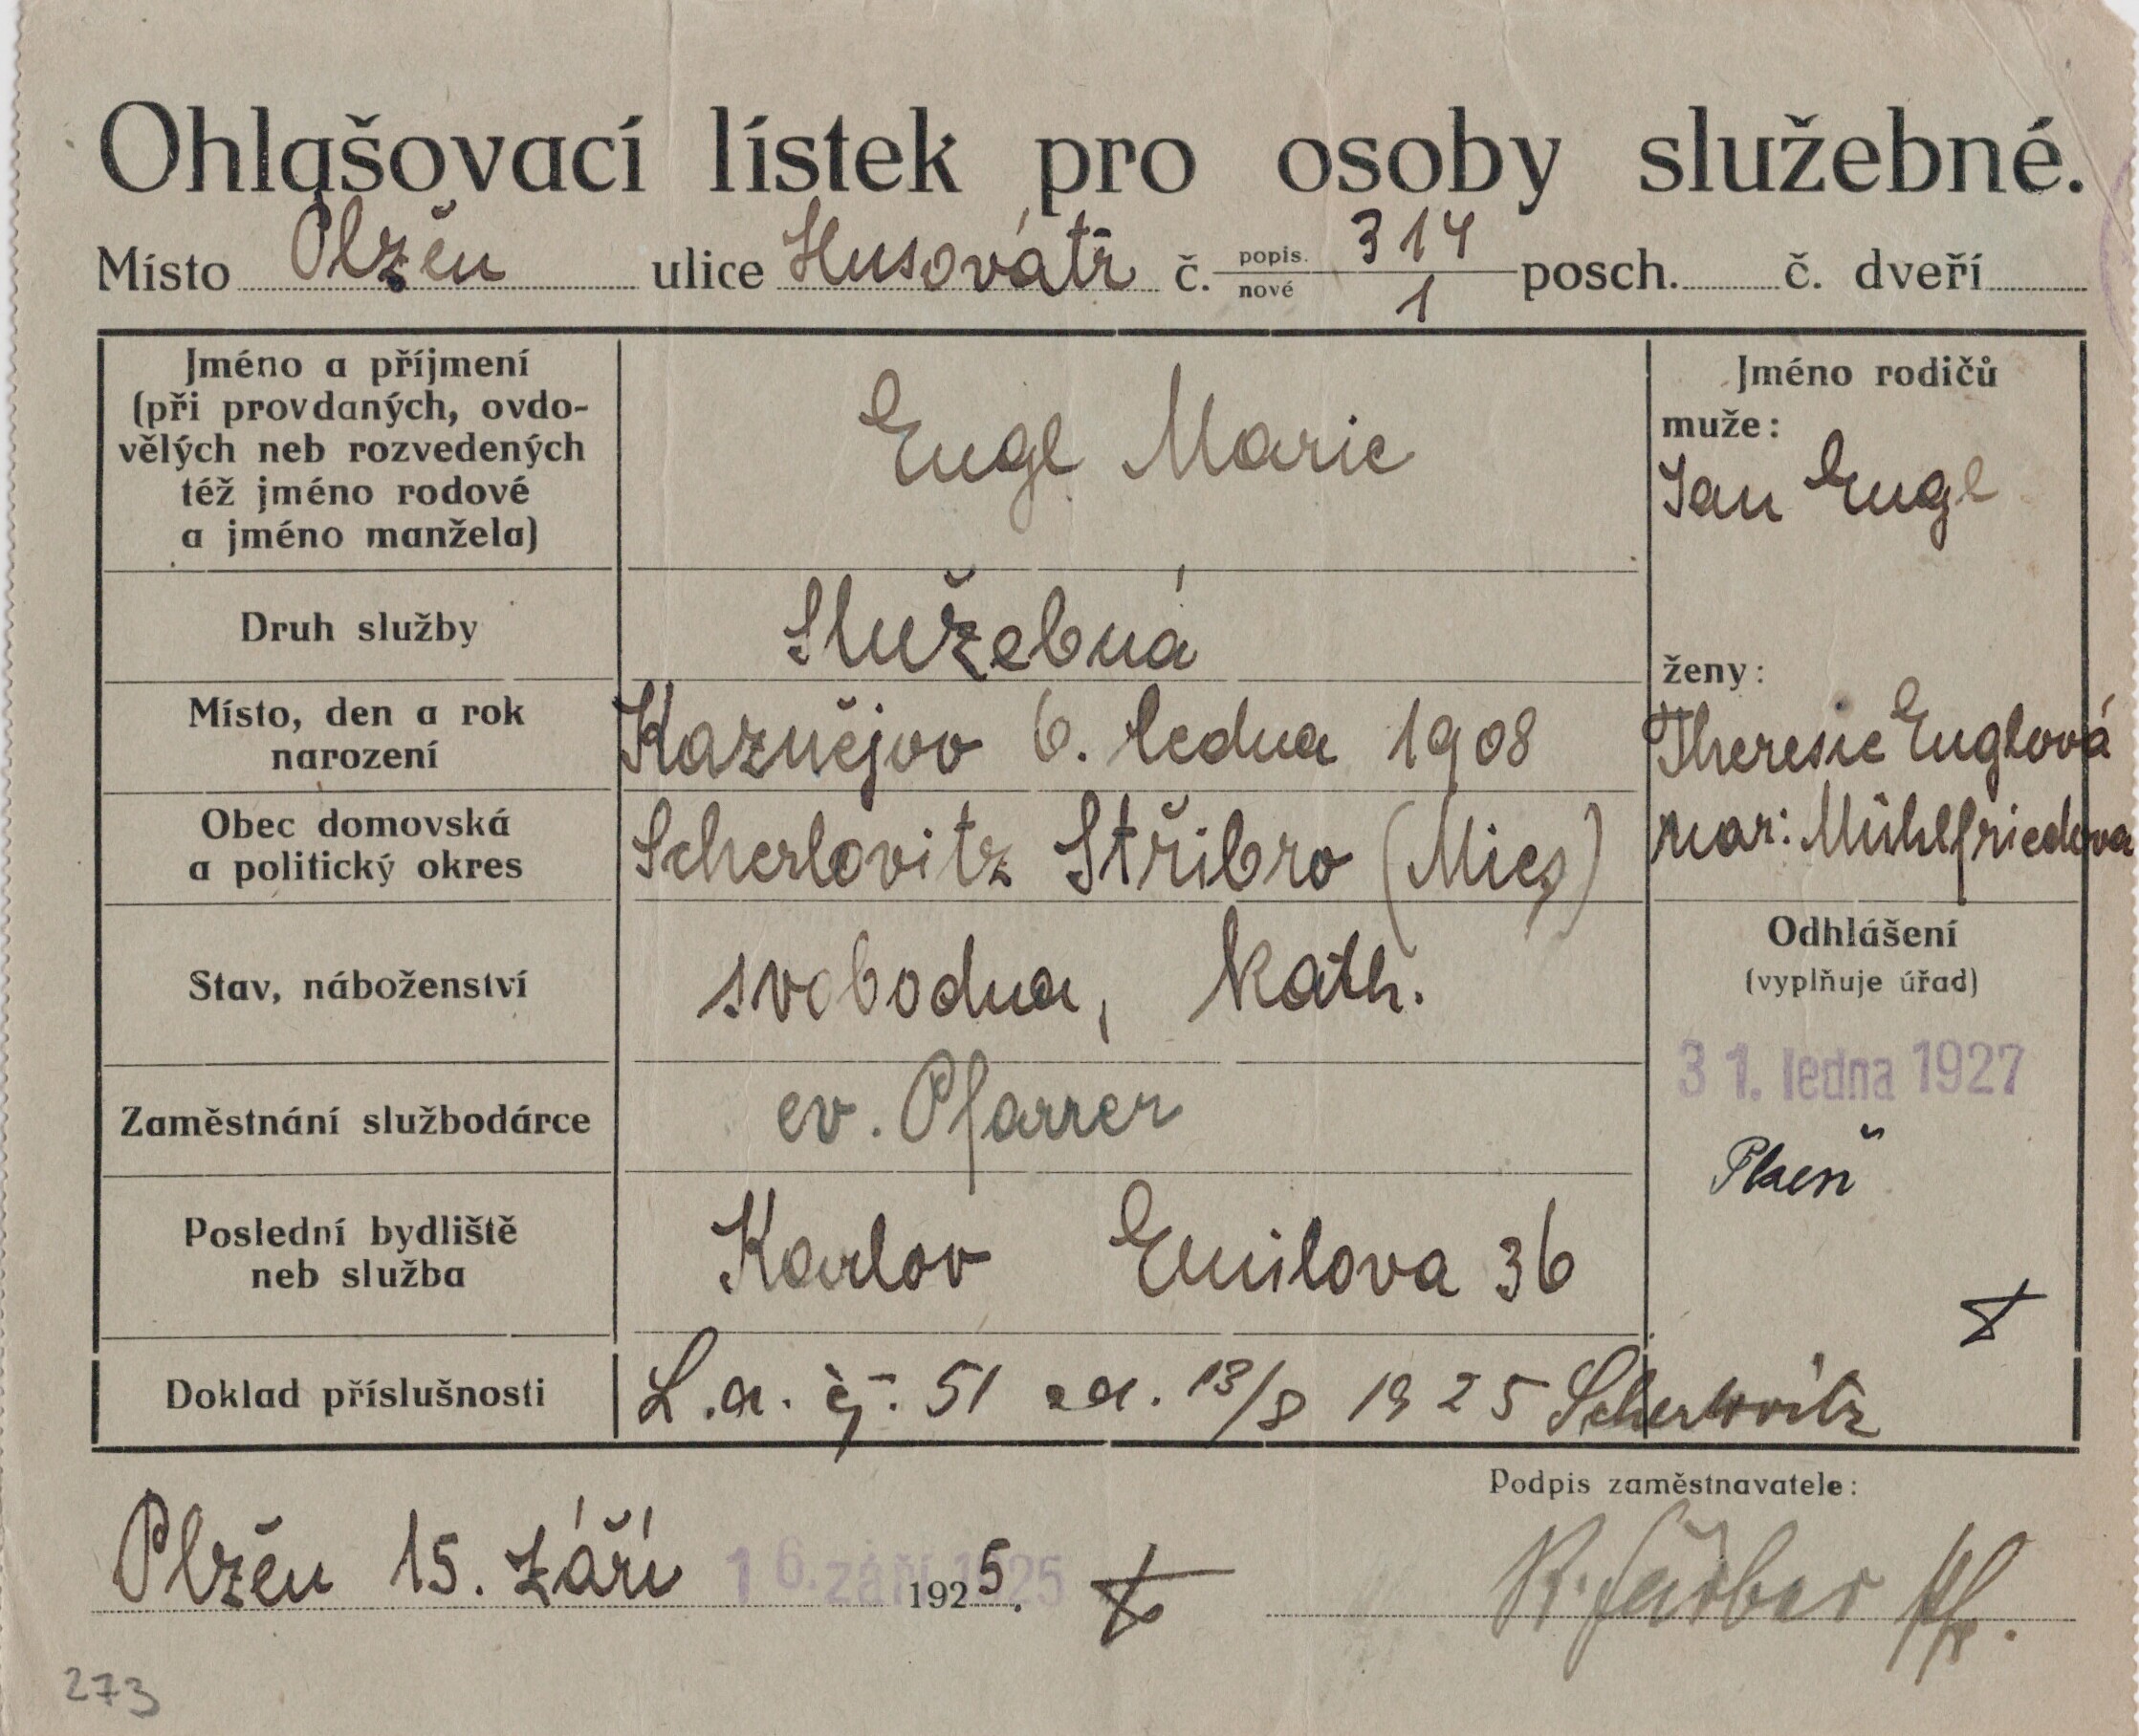 Ohlašovací lístek pro osoby služebné.
Místo Plzěn ulice Husovátř č. popis. 314 posch. č. dveří
nové 1
Jméno a příjmení
(při provdaných, ovdo-
vělých neb rozvedených
též jméno rodové
a jméno manžela)
Engl Marie
Jméno rodičů
muže:
Jan Engl
Druh služby
Služebná
ženy:
Místo, den a rok
narození
Kaznějov 6. ledna 1908
Theresie Englová
Obec domovská
a politický okres
Scherlovitz Střibro (Mies)
nar: Mühlfriedova
Stav, náboženství
svobodna, Kath.
Odhlášení
(vyplňuje úřad)
31. ledna 1927
Plzeň
Zaměstnání službodárce
ev. Pfarrer
Poslední bydliště
neb služba
Karlov Emilova 36
Doklad příslušnosti
L.a. čj. 51 za. 13/8 1925 Scherlovitz
Podpis zaměstnavatele:
Plzěn 15. září 16. září 1925 1925.
R. Färber Pf.
273